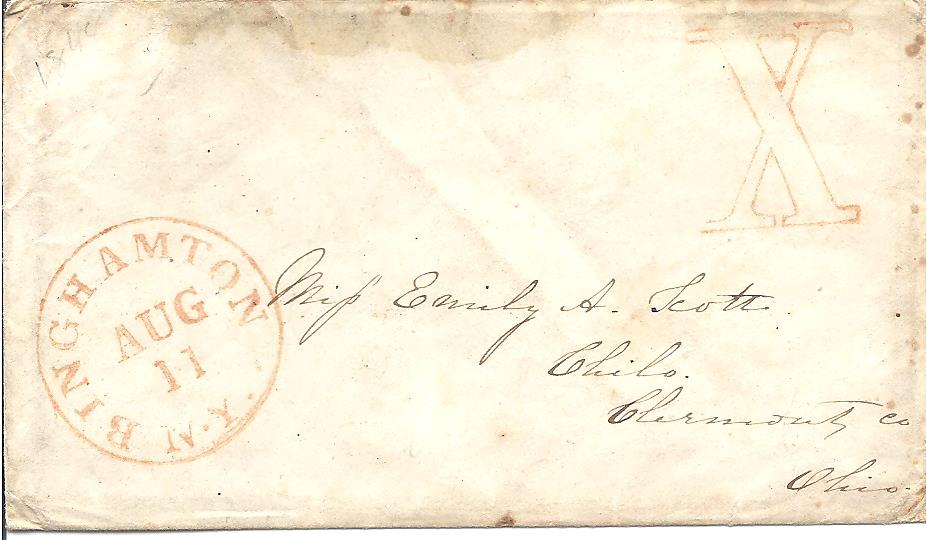 X
BINGHAMTON N.Y.
AUG
11
Miſs Emily A. Scott.
Chilo.
Clermont co
Ohio.